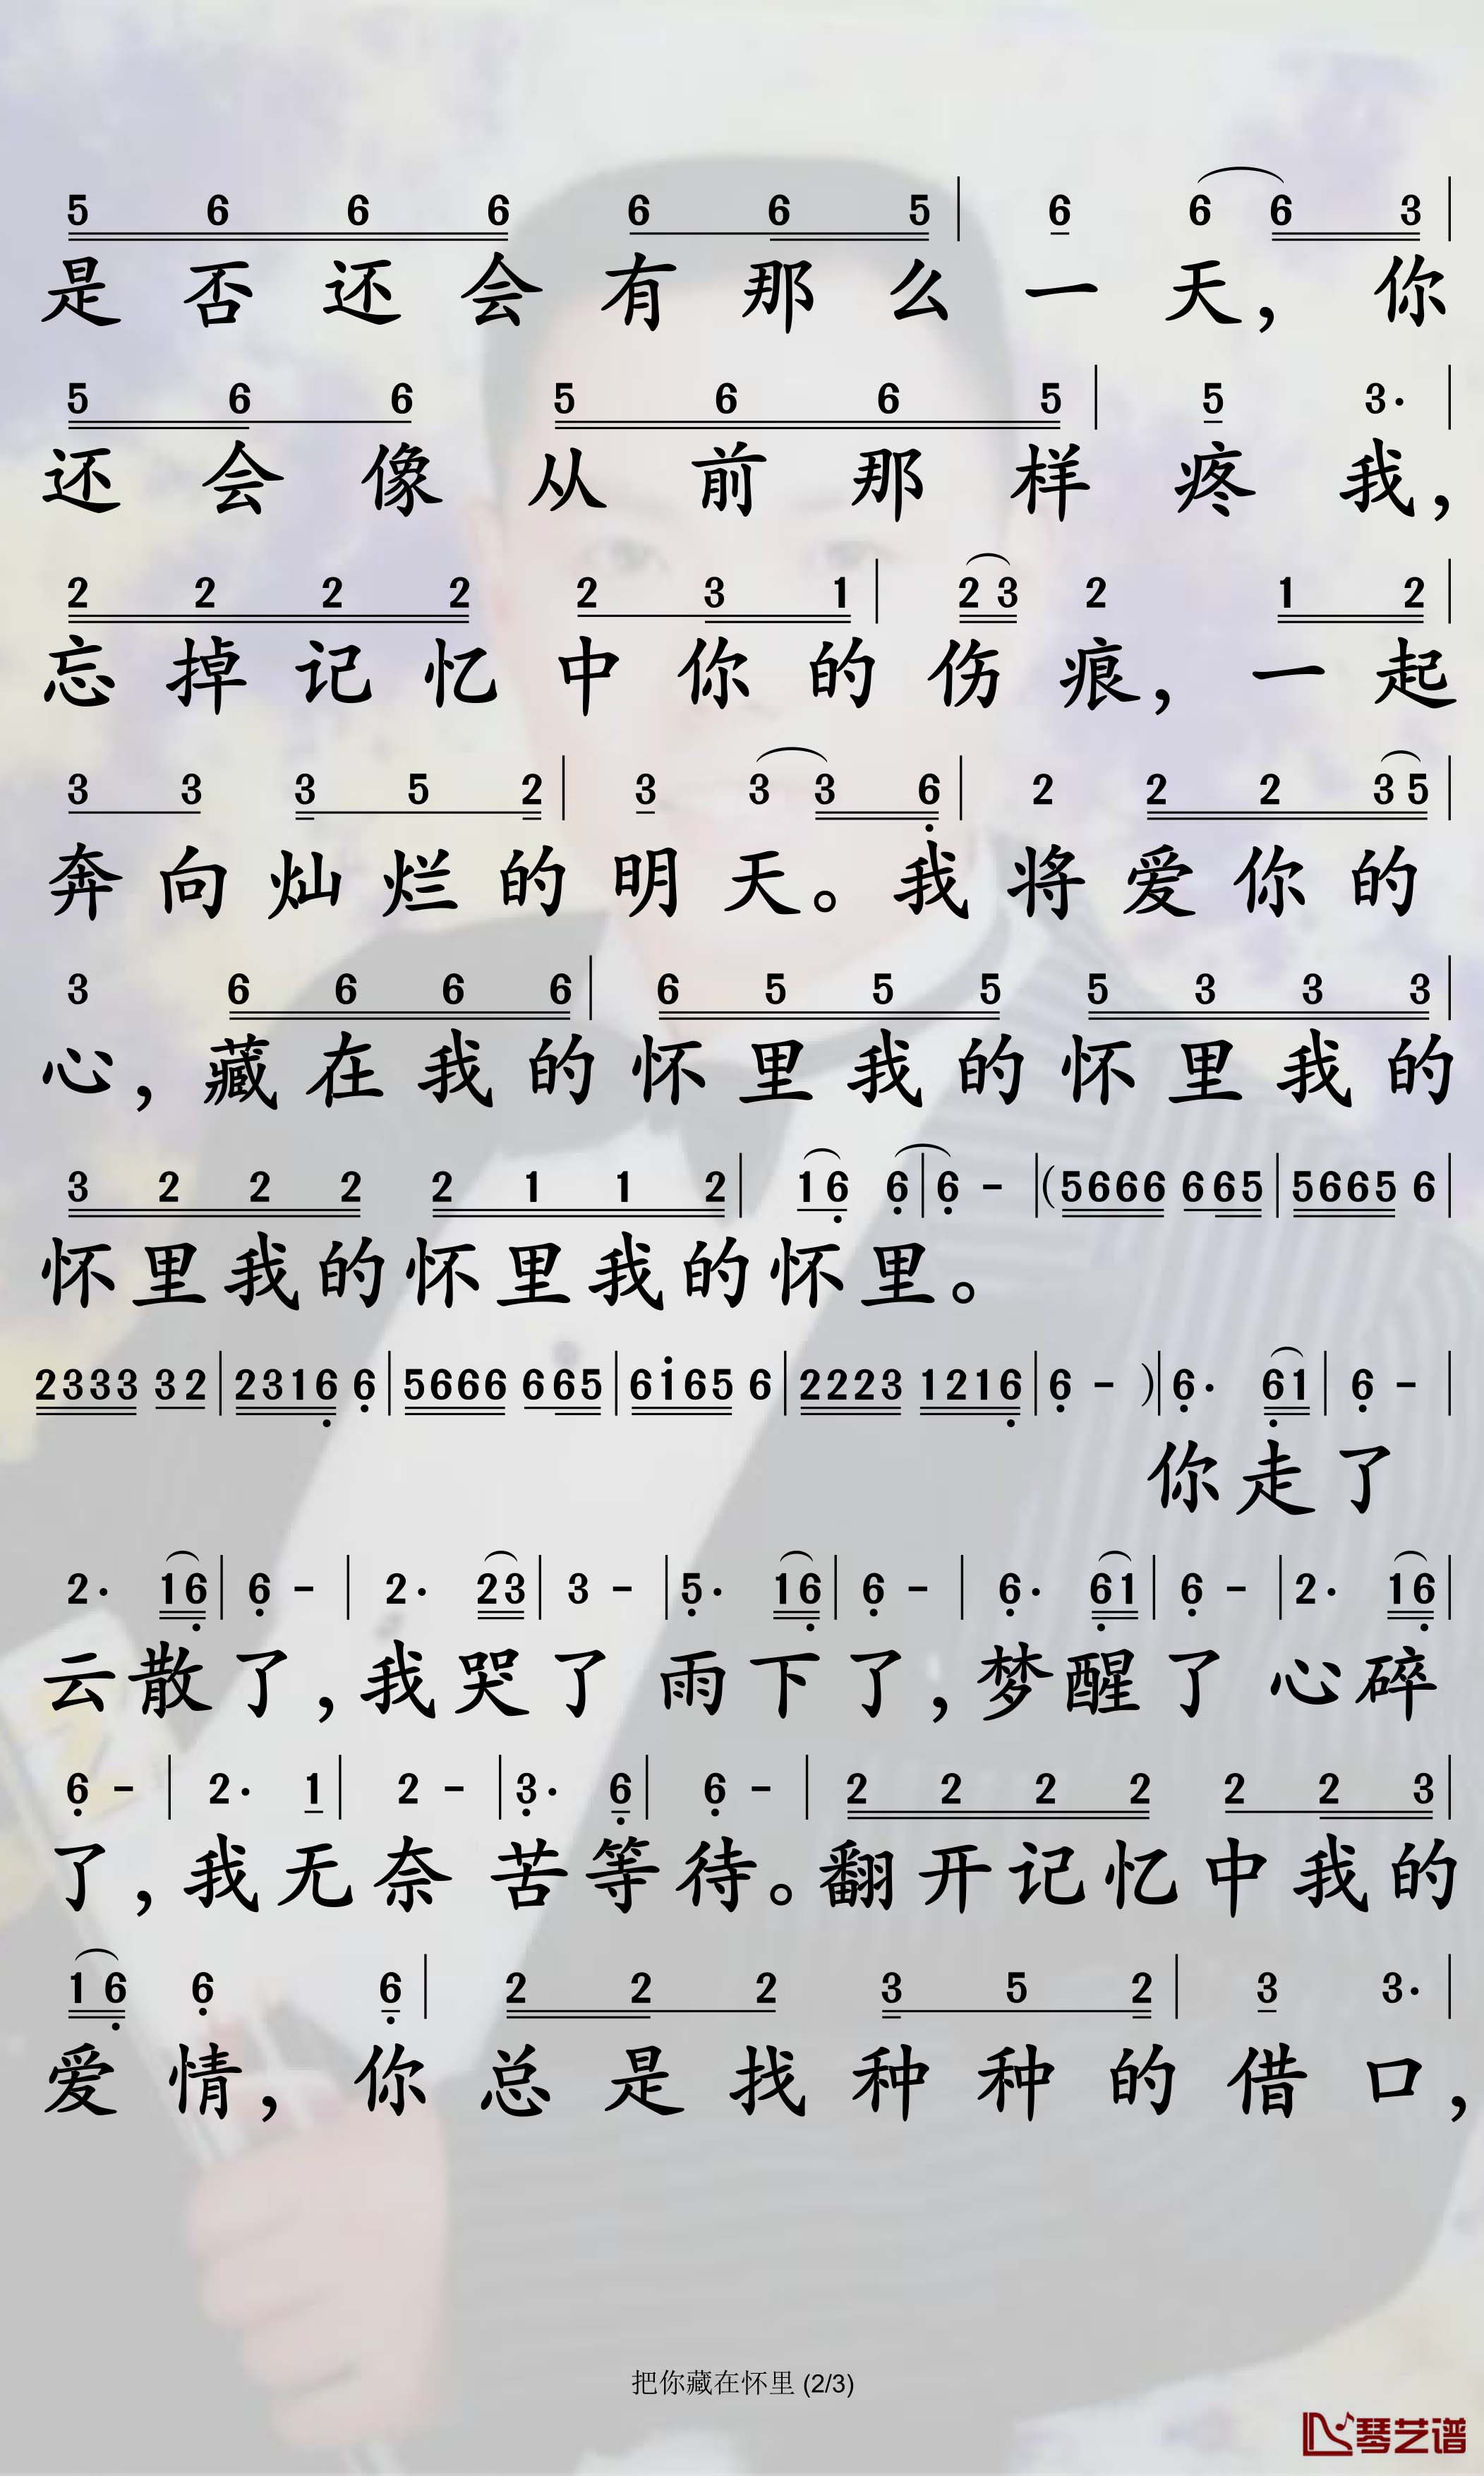 5 6 6 6 6 6 5 | 6 6 6 3 |
是否还会有那么一天，你
5 6 6 5 6 6 5 | 5 3· |
还会像从前那样疼我，
2 2 2 2 2 3 1 | 2 3 2 1 2 |
忘掉记忆中你的伤痕，一起
3 3 3 5 2 | 3 3 3 6 | 2 2 2 3 5 |
奔向灿烂的明天。我将爱你的
3 6 6 6 6 | 6 5 5 5 5 3 3 3 |
心，藏在我的怀里我的怀里我的
3 2 2 2 2 1 1 2 | 1 6 6 | 6 - | (5666 665 | 5665 6 |
怀里我的怀里我的怀里。
2333 32 | 2316 6 | 5666 665 | 6i65 6 | 2223 1216 | 6 - ) | 6· 61 | 6 - |
你走了
2· 16 | 6 - | 2· 23 | 3 - | 5· 16 | 6 - | 6· 61 | 6 - | 2· 16 |
云散了，我哭了 雨下了，梦醒了 心碎
6 - | 2· 1 | 2 - | 3· 6 | 6 - | 2 2 2 2 2 2 3 |
了，我无奈 苦等待。翻开记忆中我的
1 6 6 6 | 2 2 2 3 5 2 | 3 3· |
爱情，你总是找种种的借口，
把你藏在怀里 (2/3)
琴艺谱